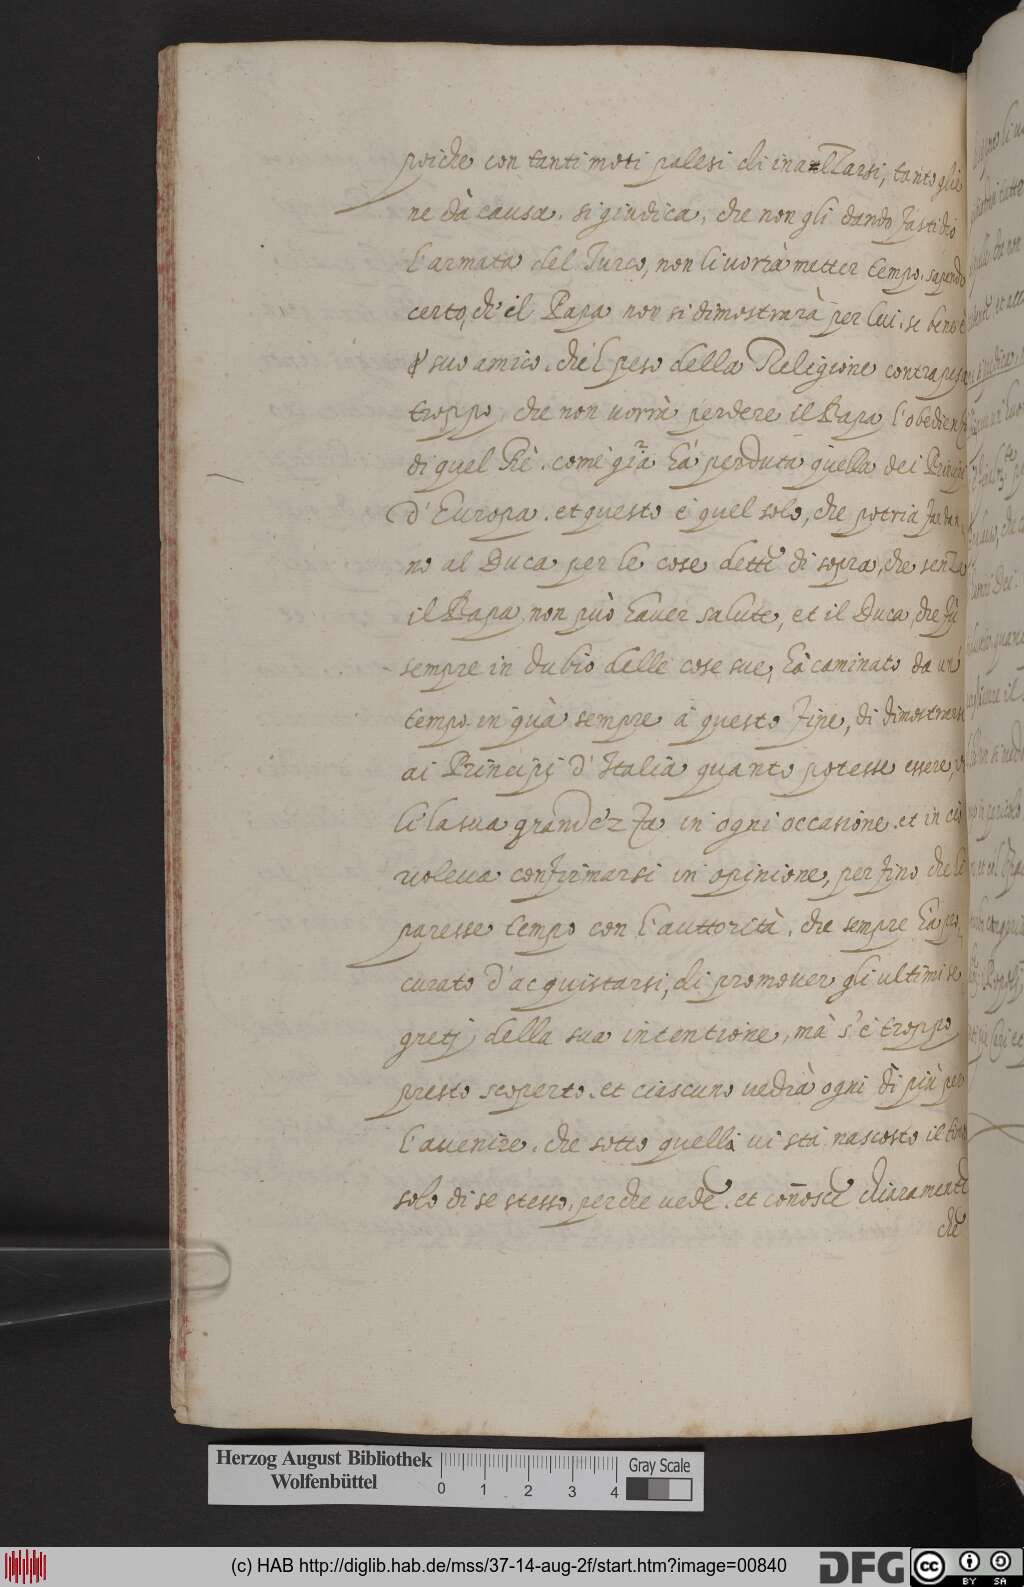 poiche con tanti moti palesi di inalzarsi, tanto gliè
ne dà causa. si giudica, che non gli dando fastidio
l'armata del Turco, non li uorrà metter tempo. sapendo
certo, ch'il Papa non si dimostrarà per lui. se bene è
suo amico. che'l peso della Religione contrapesa
troppo, che non uorrà perdere il Papa l'obedienz
di quel Rè. come già hà perduta quella dei Principi
d'Europa. et questo è quel solo, che potria far dan,
no al Duca per le cose dette di sopra, che senza
il Papa, non può hauer salute, et il Duca, che fù
sempre in dubio delle cose sue, hà caminato da un'
tempo in quà sempre à questo fine, di dimostrarse
ai Principi d'Italia quanto potesse essere,
li la sua grandezza in ogni occasione. et in ciò
voleua confirmarsi in opinione, per fino che li
paresse tempo con l'auttorità, che sempre hà pro,
curato d'acquistarsi, di promouer gli ultimi se
greti della sua intentione, mà s'è troppo
presto scoperto. et ciascuno uedrà ogni dì più per
l'auenire. che sotto quella ui stà nascosto il
solo di se stesso, perche uede. et conosce chiaramente
che
Herzog August Bibliothek
Wolfenbüttel
0 1 2 3 4
Gray Scale
(c) HAB http://diglib.hab.de/mss/37-14-aug-2f/start.htm?image=00840
DFG
cc BY SA